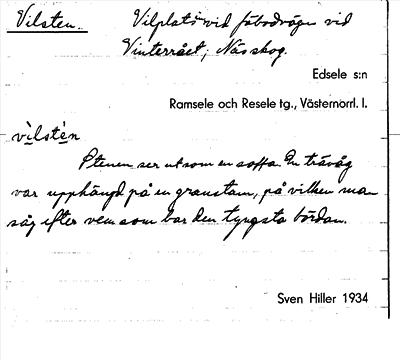 Vilsten. Vilplats vid fäbodvägen vid
Vinterrået, Näs skog.
Edsele s:n
Ramsele och Resele tg., Västernorrl. l.
vìlstèn
Stenen ser ut som en soffa. En trävåg
var upphängd på en granstam, på vilken man
såg efter vem som bar den tyngsta bördan.
Sven Hiller 1934